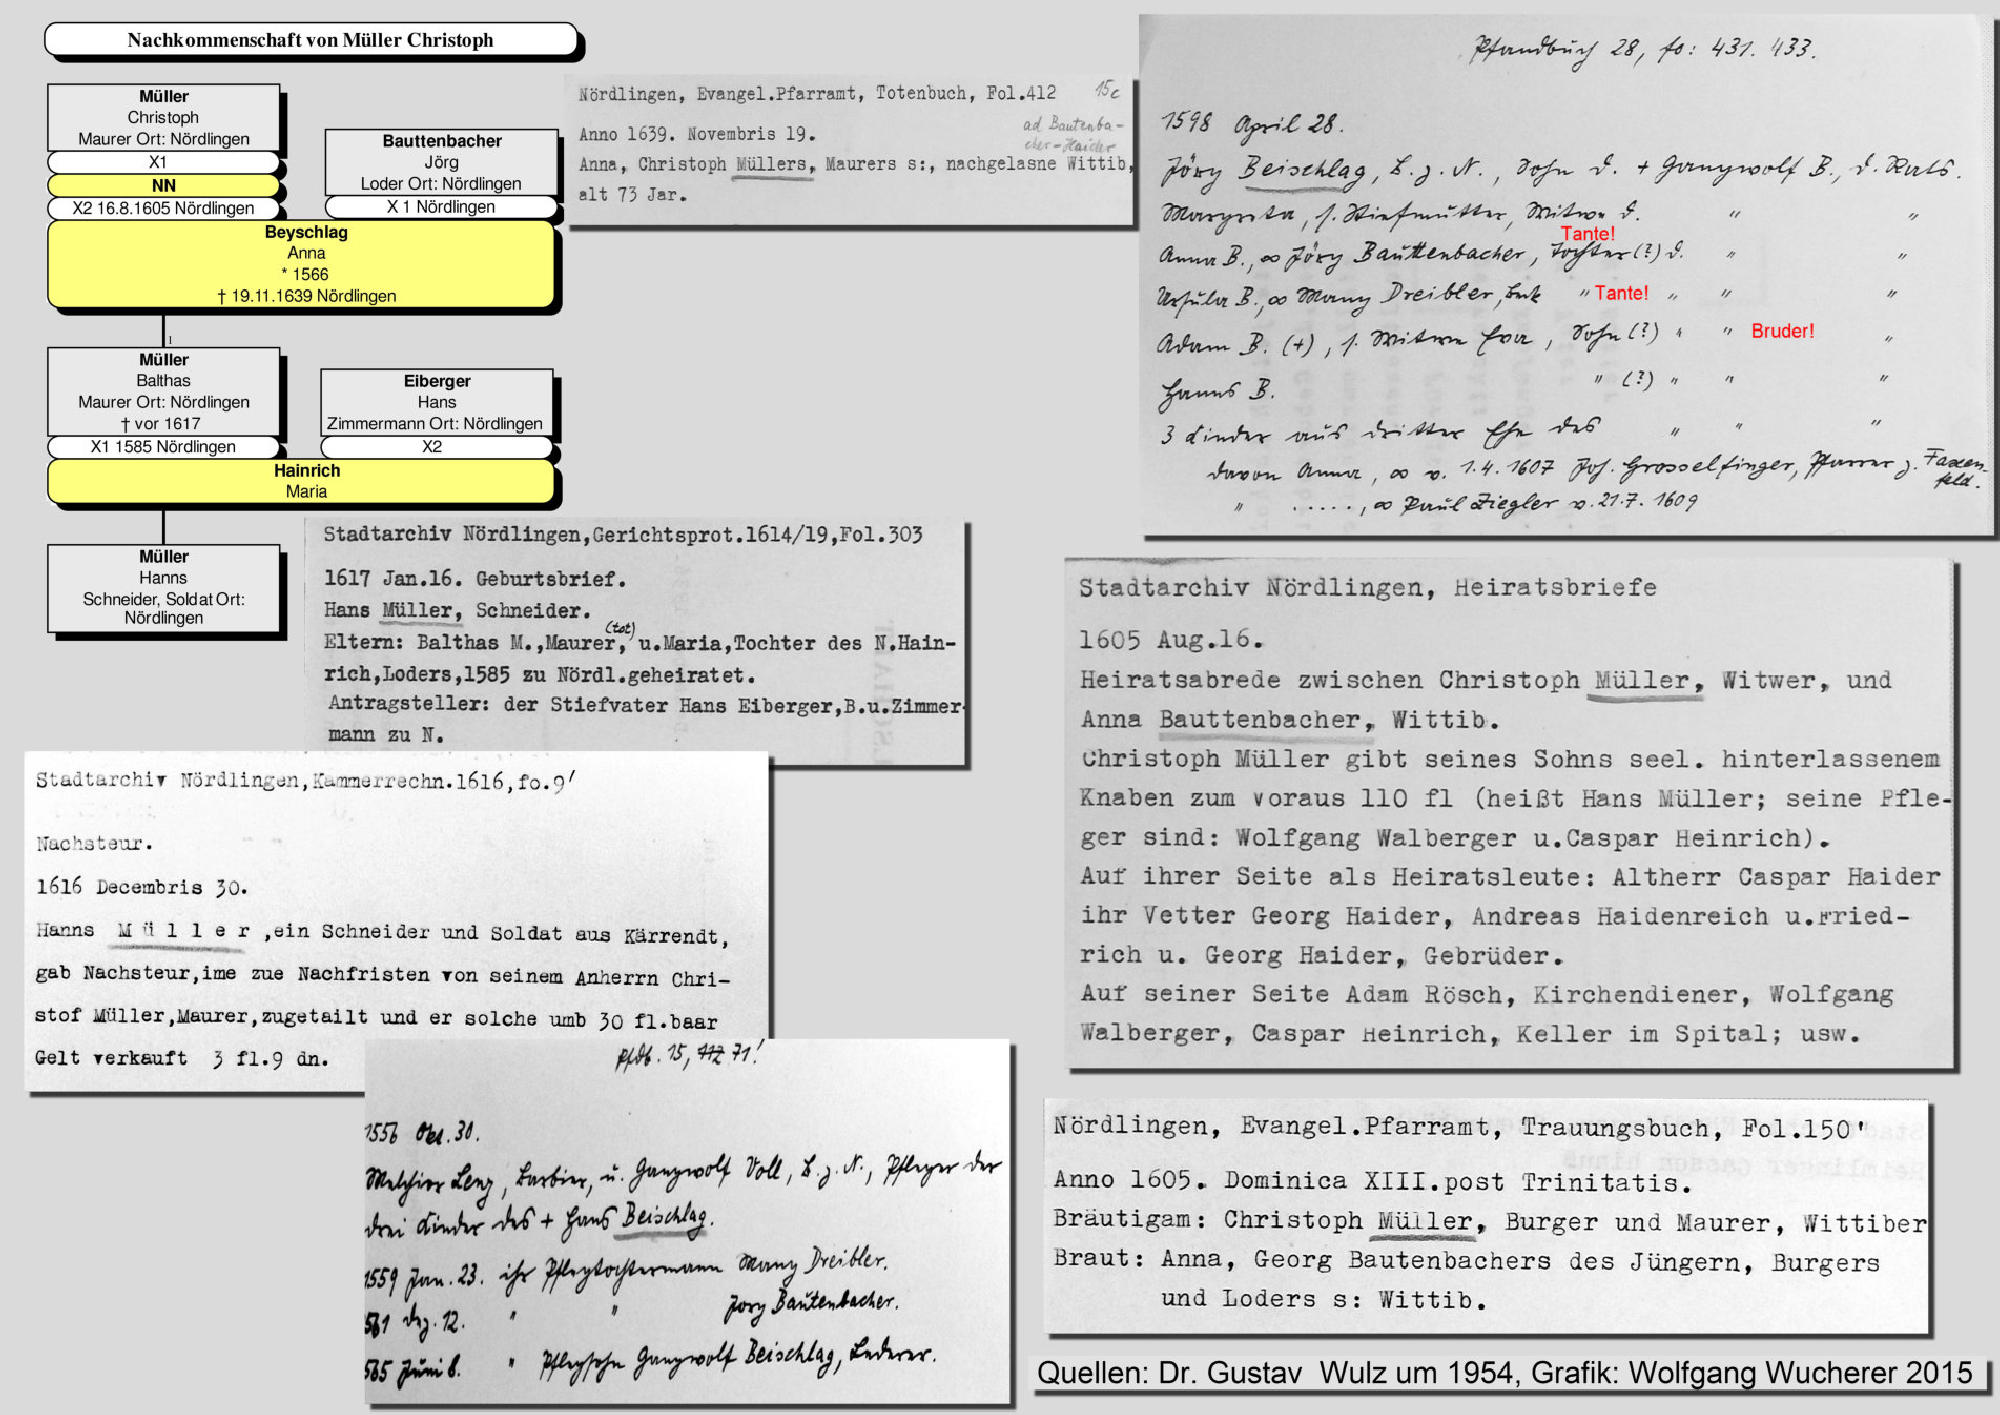 Nachkommenschaft von Müller Christoph
Müller
Christoph
Maurer Ort: Nördlingen
X1
NN
X2 16.8.1605 Nördlingen
Bauttenbacher
Jörg
Loder Ort: Nördlingen
X 1 Nördlingen
Beyschlag
Anna
* 1566
† 19.11.1639 Nördlingen
1
Müller
Balthas
Maurer Ort: Nördlingen
† vor 1617
X1 1585 Nördlingen
Eiberger
Hans
Zimmermann Ort: Nördlingen
X2
Hainrich
Maria
Müller
Hanns
Schneider, Soldat Ort:
Nördlingen
Nördlingen, Evangel.Pfarramt, Totenbuch, Fol.412 15c
Anno 1639. Novembris 19.
ad Bautenba-
cher-Haider
Anna, Christoph Müllers, Maurers s:, nachgelasne Wittib,
alt 73 Jar.
Pfandbuch 28, fo: 431. 433.
1598 April 28.
Jörg Beischlag, B. z. N., Sohn d. + Gangwolf B., d. Rats.
Margreta, s. Stiefmutter, Witwe d. " "
Tante!
Anna B., ∞ Jörg Bauttenbacher, Tochter (?) d. " "
Ursula B., ∞ Mang Dreibler, " Tante! " " "
Adam B. (+), s. Witwe Eva, Sohn (?) " " Bruder! "
Hanns B. " (?) " " "
3 Kinder aus dritter Ehe des " " "
davon Anna, ∞ v. 1.4. 1607 Joh. Grosselfinger, Pfarrer z. Faxen-
feld.
" ....., ∞ Paul Ziegler v. 21.7. 1609
Stadtarchiv Nördlingen,Gerichtsprot.1614/19,Fol.303
1617 Jan.16. Geburtsbrief.
Hans Müller, Schneider.
(tot)
Eltern: Balthas M.,Maurer, u.Maria,Tochter des N.Hain-
rich,Loders,1585 zu Nördl.geheiratet.
Antragsteller: der Stiefvater Hans Eiberger,B.u.Zimmer-
mann zu N.
Stadtarchiv Nördlingen, Heiratsbriefe
1605 Aug.16.
Heiratsabrede zwischen Christoph Müller, Witwer, und
Anna Bauttenbacher, Wittib.
Christoph Müller gibt seines Sohns seel. hinterlassenem
Knaben zum voraus 110 fl (heißt Hans Müller; seine Pfle-
ger sind: Wolfgang Walberger u.Caspar Heinrich).
Auf ihrer Seite als Heiratsleute: Altherr Caspar Haider
ihr Vetter Georg Haider, Andreas Haidenreich u.Fried-
rich u. Georg Haider, Gebrüder.
Auf seiner Seite Adam Rösch, Kirchendiener, Wolfgang
Walberger, Caspar Heinrich, Keller im Spital; usw.
Stadtarchiv Nördlingen,Kammerrechn.1616,fo.9'
Nachsteur.
1616 Decembris 30.
Hanns Müller,ein Schneider und Soldat aus Kärrendt,
gab Nachsteur,ime zue Nachfristen von seinem Anherrn Chri-
stof Müller,Maurer,zugetailt und er solche umb 30 fl.baar
Gelt verkauft 3 fl.9 dn.
Pfdb. 15, 71!
1556 Okt. 30.
Melchior Leng, Barbier, u. Gangwolf Voll, B. z. N., Pfleger der
drei Kinder des + Hans Beischlag.
1559 Jan. 23. ihr Pflegtochtermann Mang Dreibler.
561 Dez. 12. " " Jörg Bautenbacher.
565 Juni 8. " Pflegsohn Gangwolf Beischlag, Lederer.
Nördlingen, Evangel.Pfarramt, Trauungsbuch, Fol.150'
Anno 1605. Dominica XIII.post Trinitatis.
Bräutigam: Christoph Müller, Burger und Maurer, Wittiber
Braut: Anna, Georg Bautenbachers des Jüngern, Burgers
und Loders s: Wittib.
Quellen: Dr. Gustav Wulz um 1954, Grafik: Wolfgang Wucherer 2015